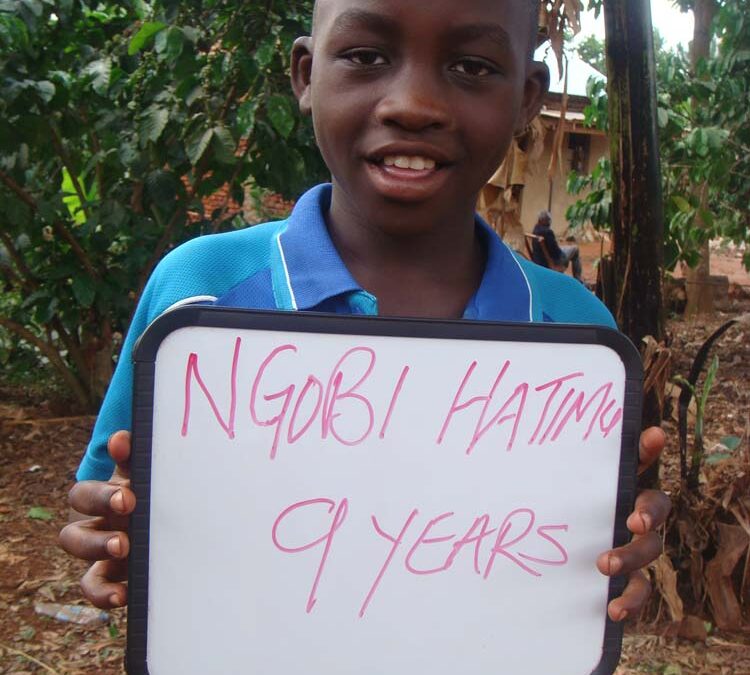 NGOBI HATIMU
9 YEARS